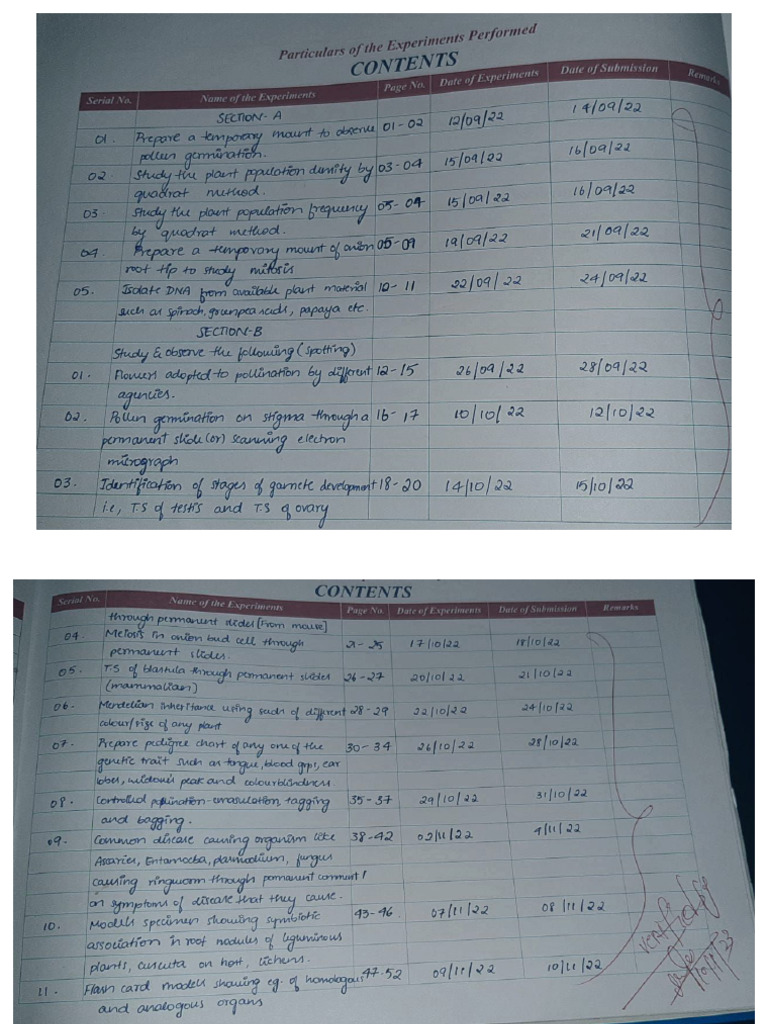 Particulars of the Experiments Performed
CONTENTS
Serial No. Name of the Experiments Page No. Date of Experiments Date of Submission Remarks
SECTION-A
01. Prepare a temporary mount to observe 01-02 12/09/22 14/09/22
pollen germination.
02. Study the plant population density by 03-04 15/09/22 16/09/22
quadrat method.
03 Study the plant population frequency 05-07 15/09/22 16/09/22
by quadrat method.
04. Prepare a temporary mount of onion 08-09 19/09/22 21/09/22
root tip to study mitosis
05. Isolate DNA from available plant material 10-11 22/09/22 24/09/22
such as spinach, green pea seeds, papaya etc.
SECTION-B
Study & observe the following (spotting)
01. Flowers adopted to pollination by different 12-15 26/09/22 28/09/22
agencies.
02. Pollen germination on stigma through a 16-17 10/10/22 12/10/22
permanent slide (or) scanning electron
micrograph
03. Identification of stages of gamete development 18-20 14/10/22 15/10/22
i.e., T.S of testis and T.S of ovary
CONTENTS
Serial No. Name of the Experiments Page No. Date of Experiments Date of Submission Remarks
through permanent slides [from mouse]
04. Meiosis in onion bud cell through 21-25 17/10/22 18/10/22
permanent slides.
05. T.S of blastula through permanent slides 26-27 20/10/22 21/10/22
(mammalian)
06. Mendelian inheritance using seeds of different 28-29 22/10/22 24/10/22
colour/size of any plant
07. Prepare pedigree chart of any one of the 30-34 26/10/22 28/10/22
genetic trait such as tongue, blood grps, ear
lobes, widow's peak and colourblindness.
08. Controlled pollination-emasulation, tagging 35-37 29/10/22 31/10/22
and bagging.
09. Common disease causing organism like 38-42 02/11/22 4/11/22
Ascaries, Entamoeba, plasmodium, fungus
causing ringworm through permanent comment
on symptoms of disease that they cause.
10. Models specimen showing symbiotic 43-46. 07/11/22 08/11/22
association in root nodules of leguminous
plants, cuscuta on host, lichens.
11. Flash card models showing eg. of homologous 47-52 09/11/22 10/11/22
and analogous organs